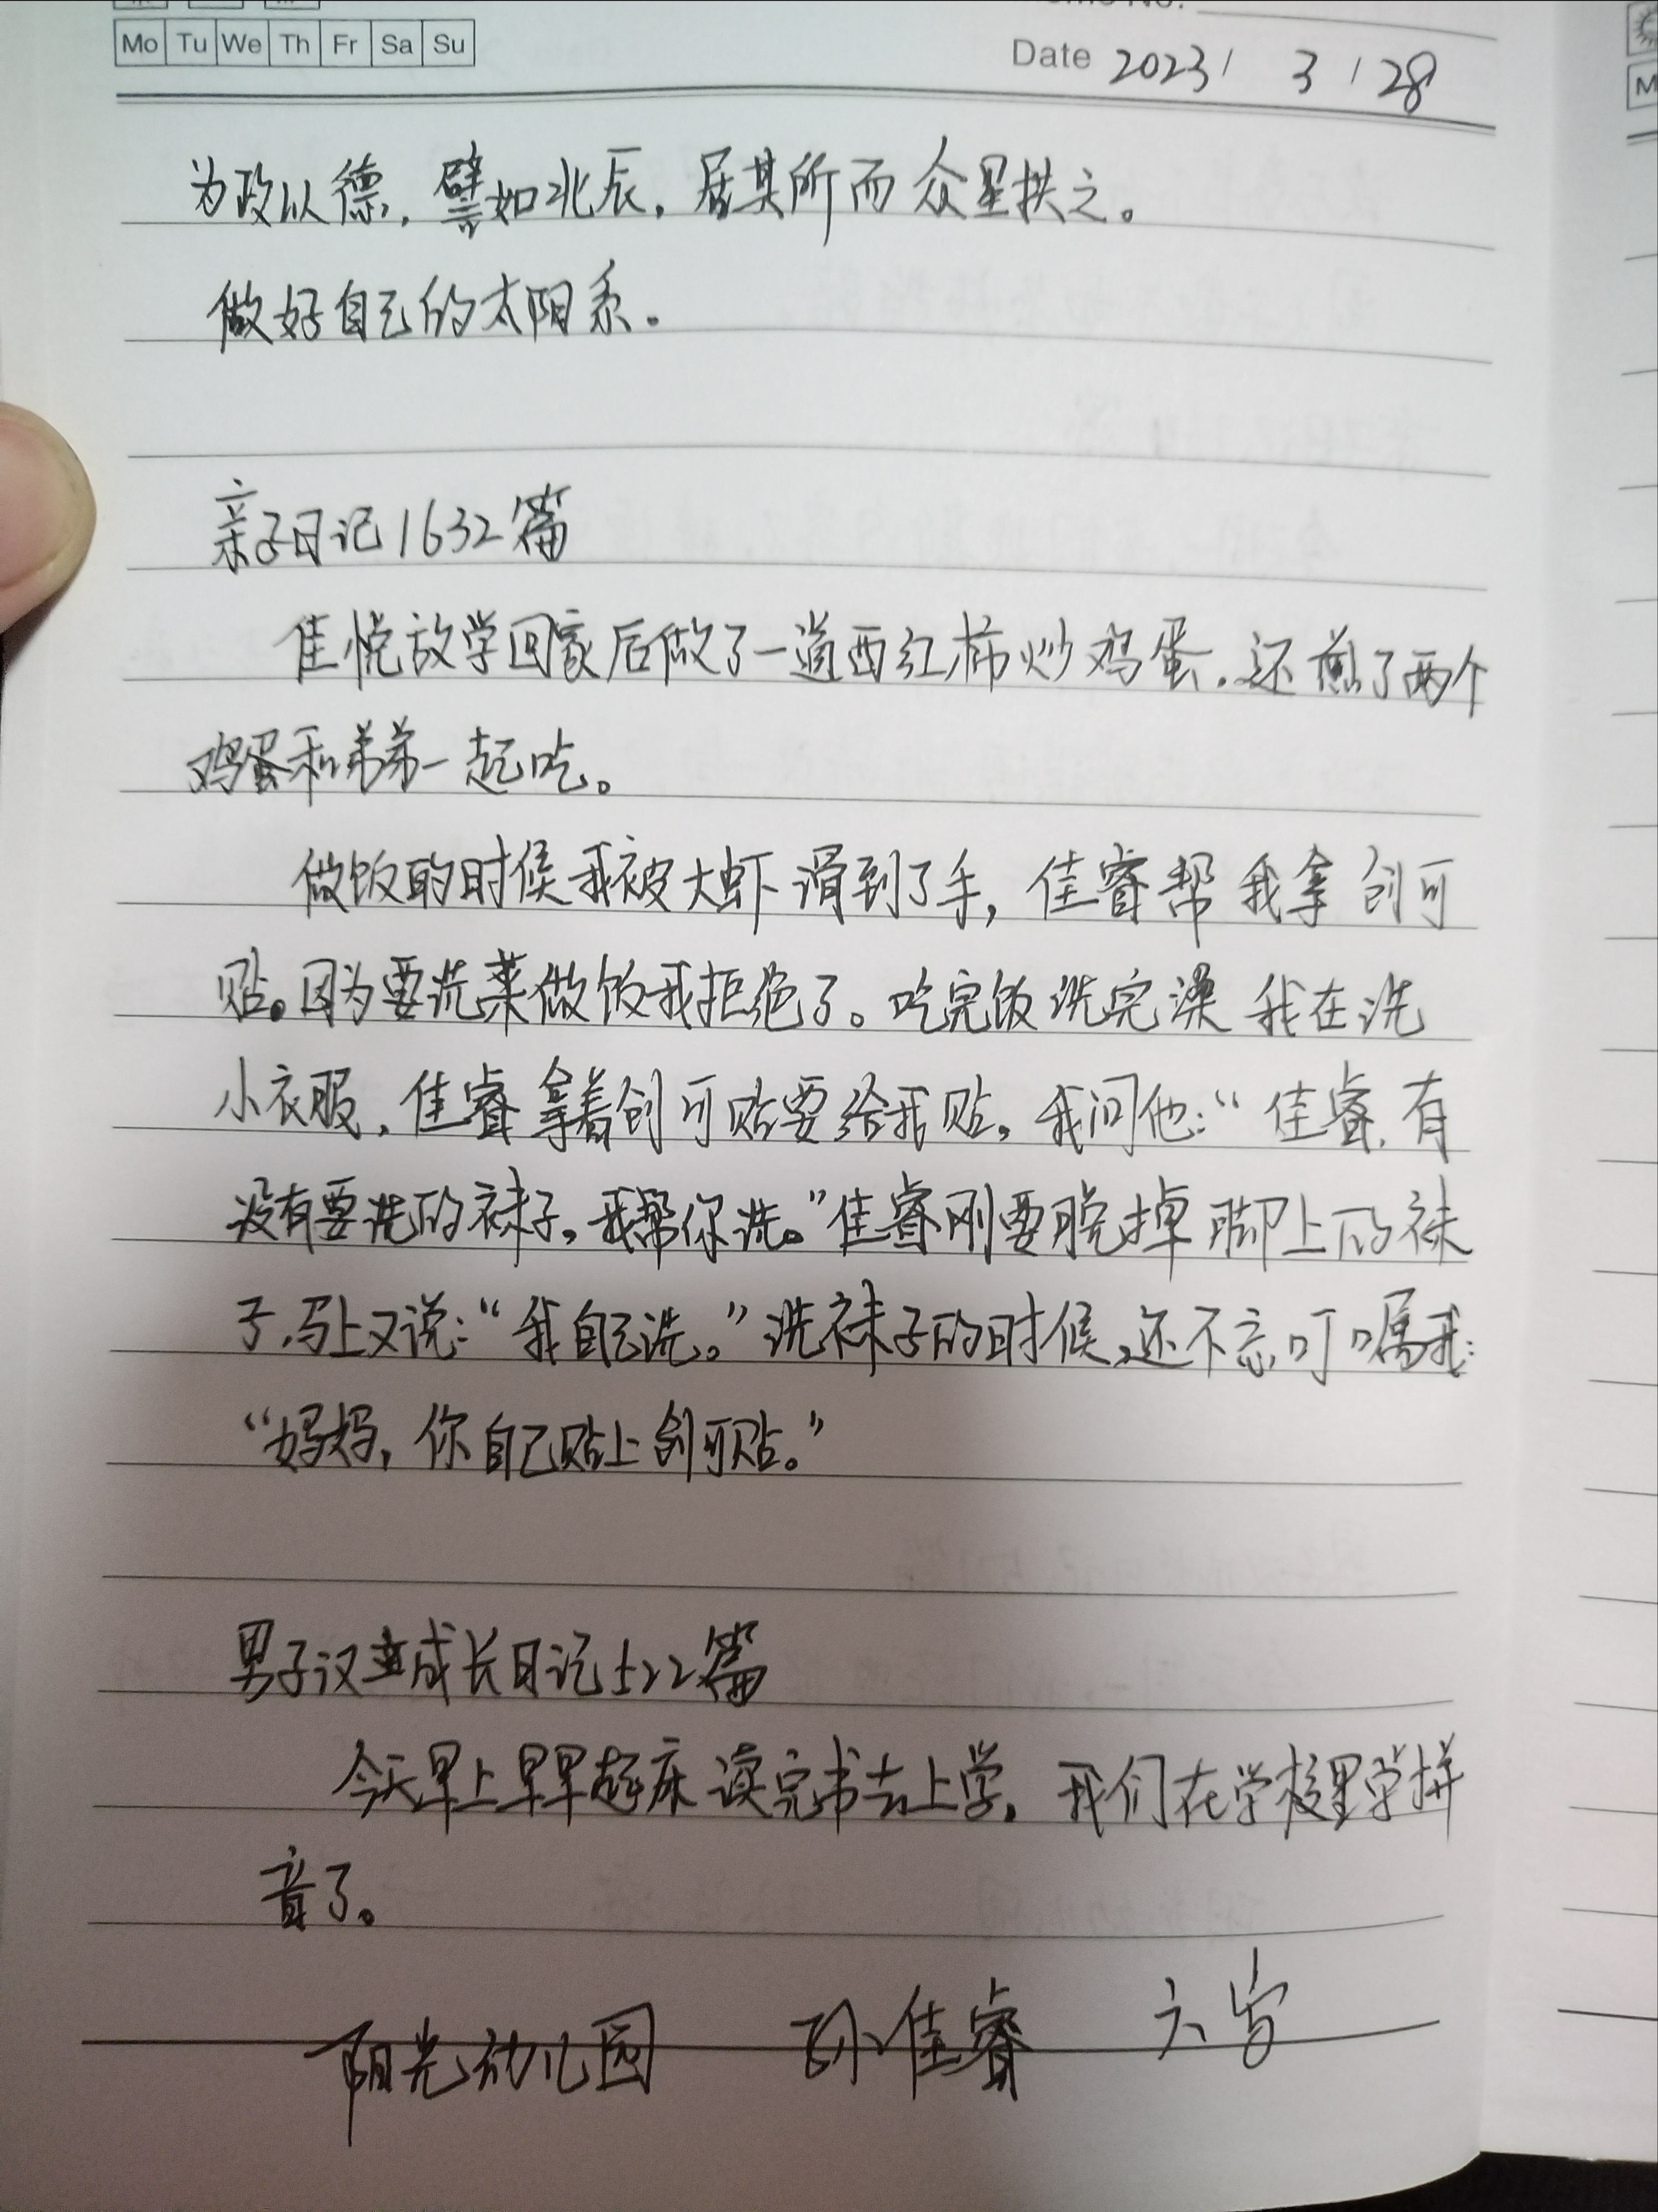 Mo Tu We Th Fr Sa Su
Date 2023/ 3 / 28
为政以德，譬如北辰，居其所而众星拱之。
做好自己的太阳系。
亲子日记1632篇
佳悦放学回家后做了一道西红柿炒鸡蛋，还煎了两个
鸡蛋和弟弟一起吃。
做饭的时候我被大虾滑到了手，佳睿帮我拿创可
贴。因为要洗菜做饭我拒绝了。吃完饭洗完澡我在洗
小衣服，佳睿拿着创可贴要给我贴。我问他：“佳睿，有
没有要洗的袜子，我帮你洗。”佳睿刚要脱掉脚上的袜
子，马上又说：“我自己洗。”洗袜子的时候，还不忘叮嘱我：
“妈妈，你自己贴上创可贴。”
男子汉成长日记522篇
今天早上早早起床读完书去上学，我们在学校里学拼
音了。
阳光幼儿园 孙佳睿 六岁